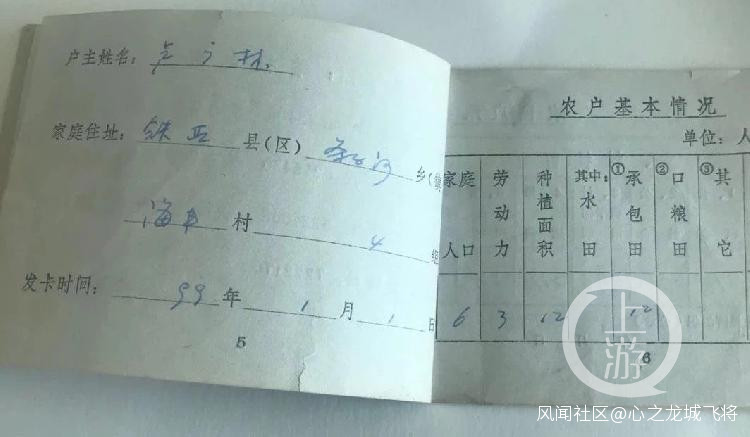 户主姓名：
家庭住址： 铁西 县（区） 乡（镇
海 村 4 组
发卡时间： 99 年 1 月 1 日
5
农户基本情况
单位：人
家庭人口 劳动力 种植面积 其中：水田 ①承包田 ②口粮田 ③其它
6 3 12 12
6
上游
风闻社区@心之龙城飞将